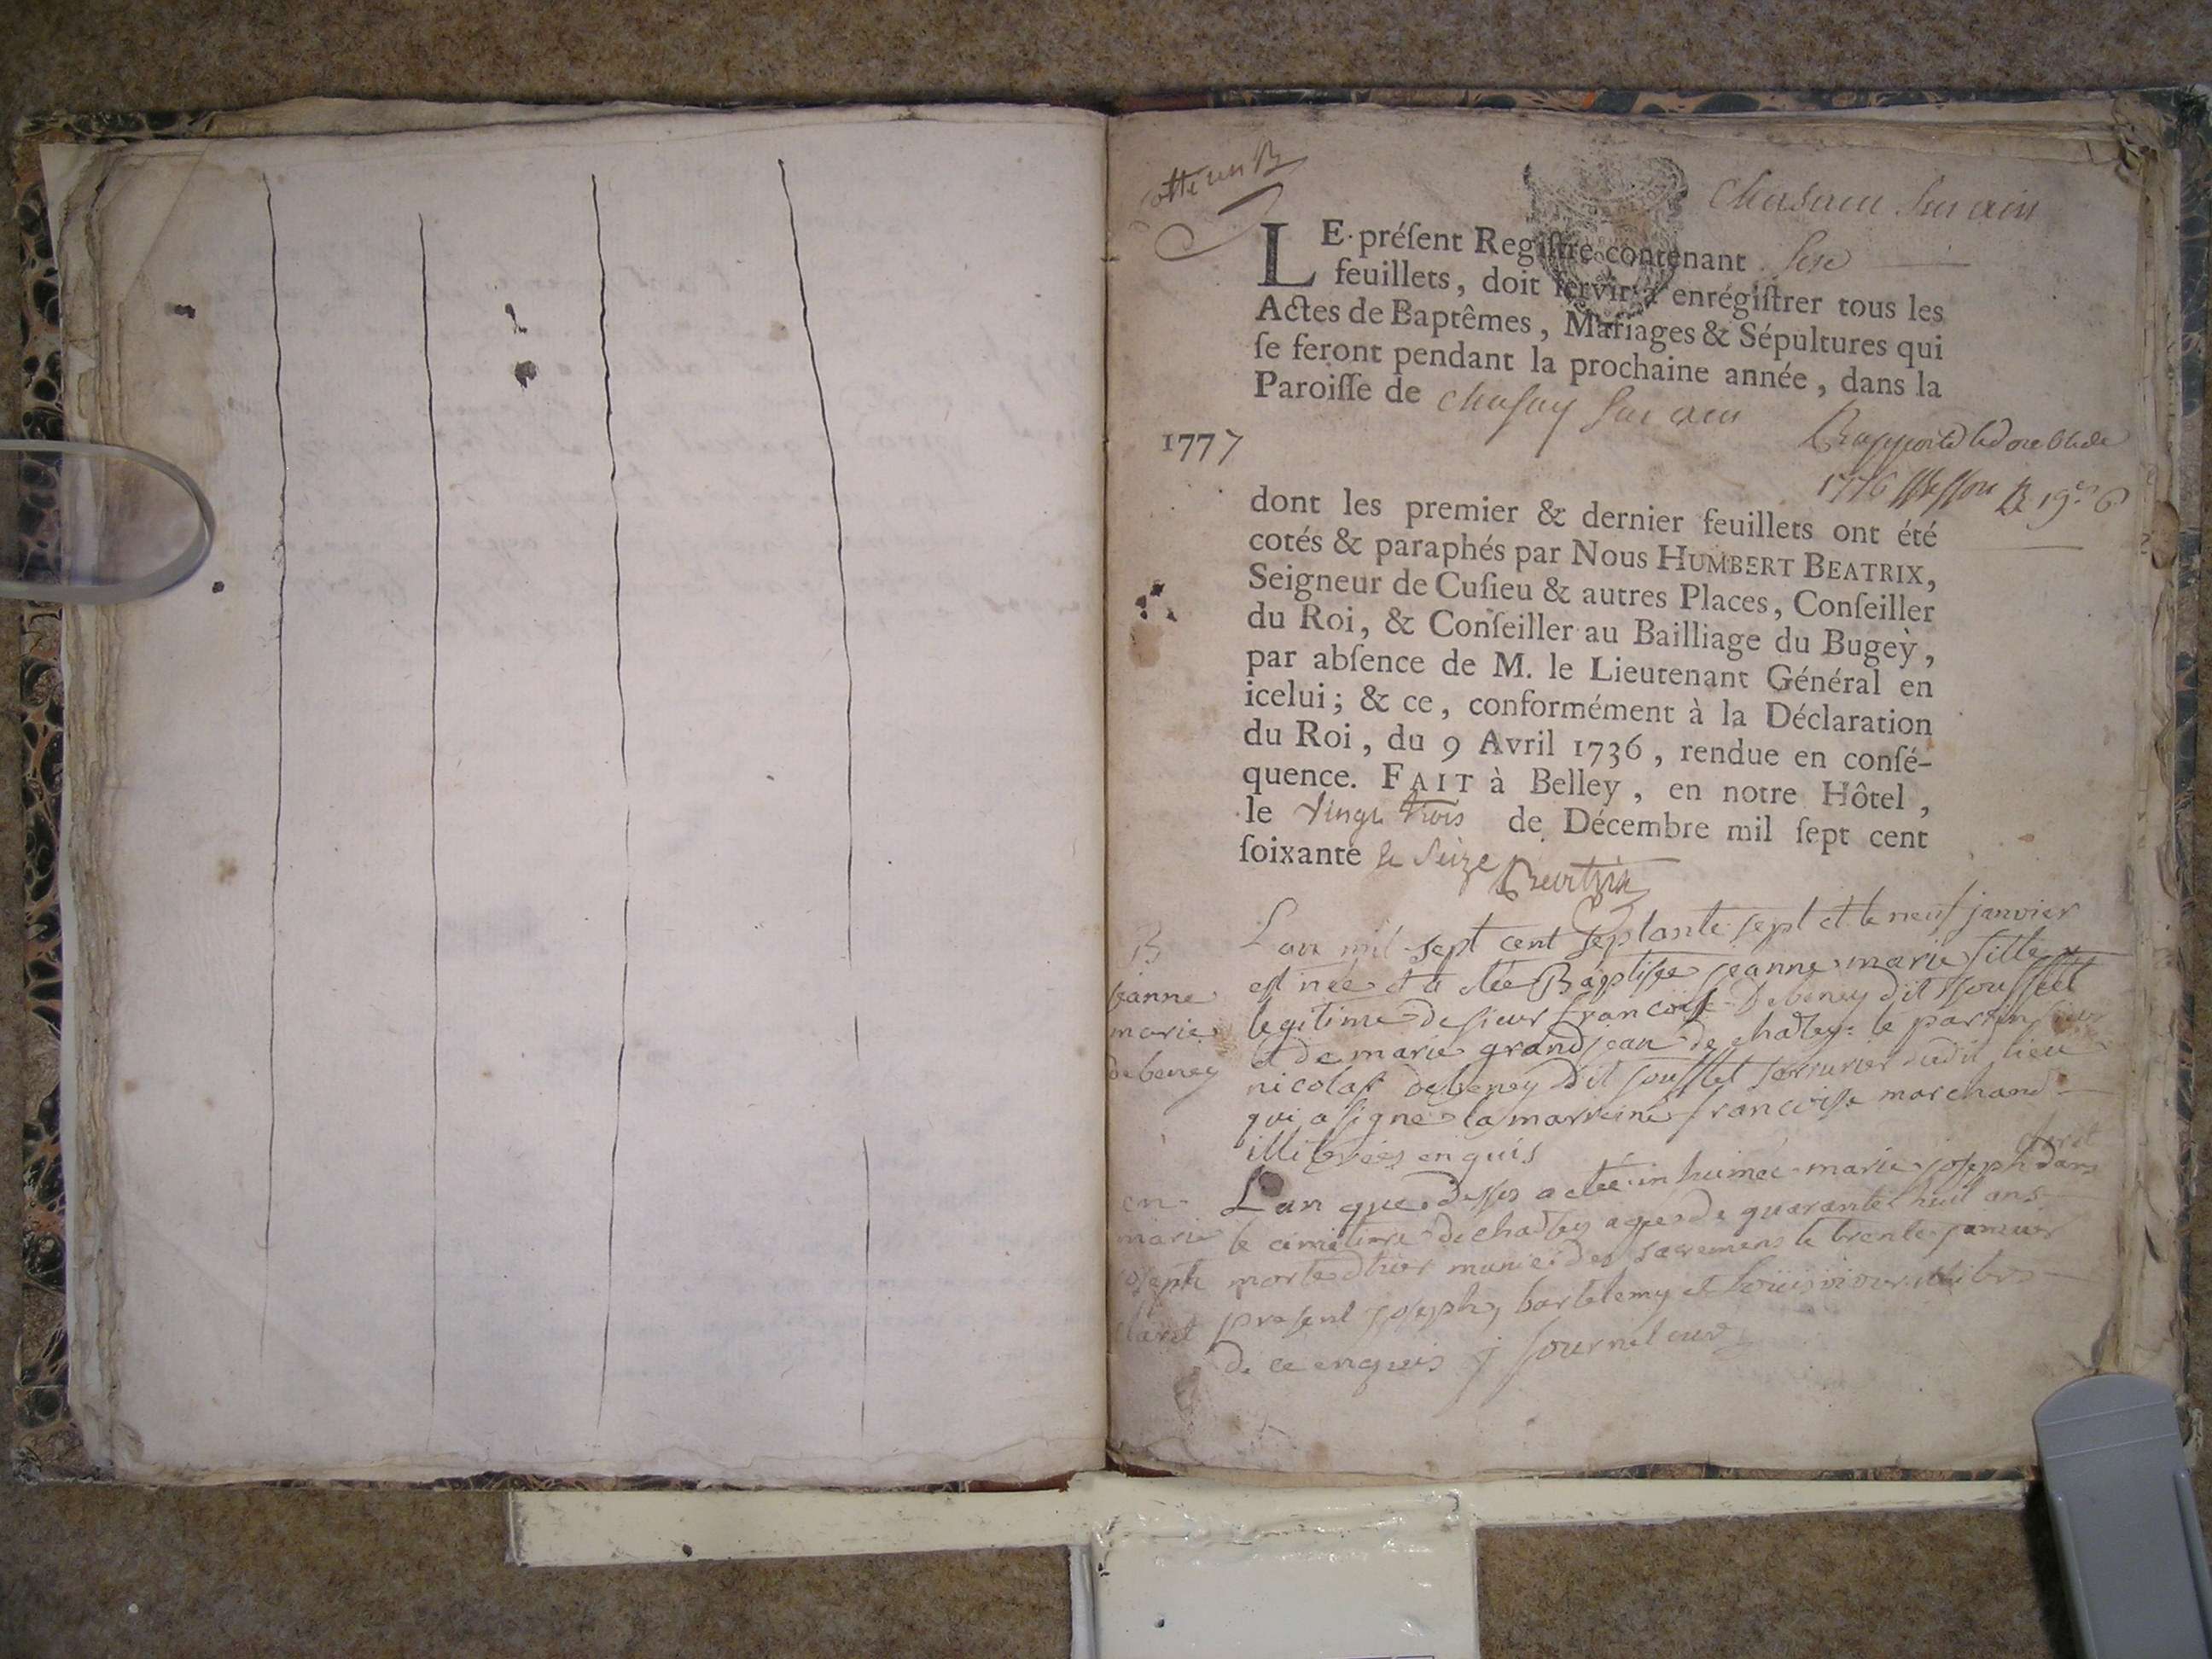 Chasaeu Sur ain
LE présent Registre contenant
feuillets, doit servir à enrégistrer tous les
Actes de Baptêmes, Mariages & Sépultures qui
se feront pendant la prochaine année, dans la
Paroisse de chasay Sur ain
1777
1776
dont les premier & dernier feuillets ont été
cotés & paraphés par Nous HUMBERT BEATRIX,
Seigneur de Cusieu & autres Places, Conseiller
du Roi, & Conseiller au Bailliage du Bugey,
par absence de M. le Lieutenant Général en
icelui; & ce, conformément à la Déclaration
du Roi, du 9 Avril 1736, rendue en consé-
quence. FAIT à Belley, en notre Hôtel,
le vingt trois de Décembre mil sept cent
soixante & seize
Beatrix
B
jeanne
marie
debeney
Lan mil sept cent septante sept et le neuf janvier
est née et a eté Baptisée jeanne marie fille
legitime de sieur francois debeney dit soufflet
et de marie grandjean de chasey le parrin sieur
nicolas debeney dit soufflet serrurier dudit lieu
qui a signe la marreine francoise marchand
illiterées enquis
en
marie
joseph
claret
Lan que dessus a etée inhumée marie joseph claret dans
le cimetiere de chasey agée de quarante huit ans
morte dhier munie des sacremens le trente janvier
present joseph, bartelemy et
de ce enquis j fournel curé